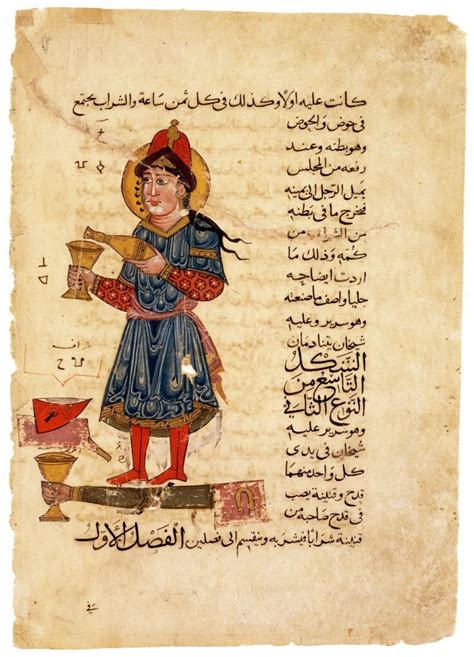 كانت عليه اولا وكذلك فى كل ثمن ساعة والشراب يجتمع
فى حوض والحوض
وهو بطنه وعند
رفعه من المجلس
يميل الرجل الى يمينه
فتخرج ما فى بطنه
من الشراب من
كمه وذلك ما
اردت ايضاحه
جليا واصف ما صنعته
وهو سرير وعليه
شيخان يتنادمان
الشكل
التاسع من
النوع الثانى
وهو سرير عليه
شيخان فى يدى
كل واحد منهما
قدح وقنينة يصب
فى قدح صاحبه من
قنينة شرابا فيشربه وينقسم الى فصلين الفصل الاول